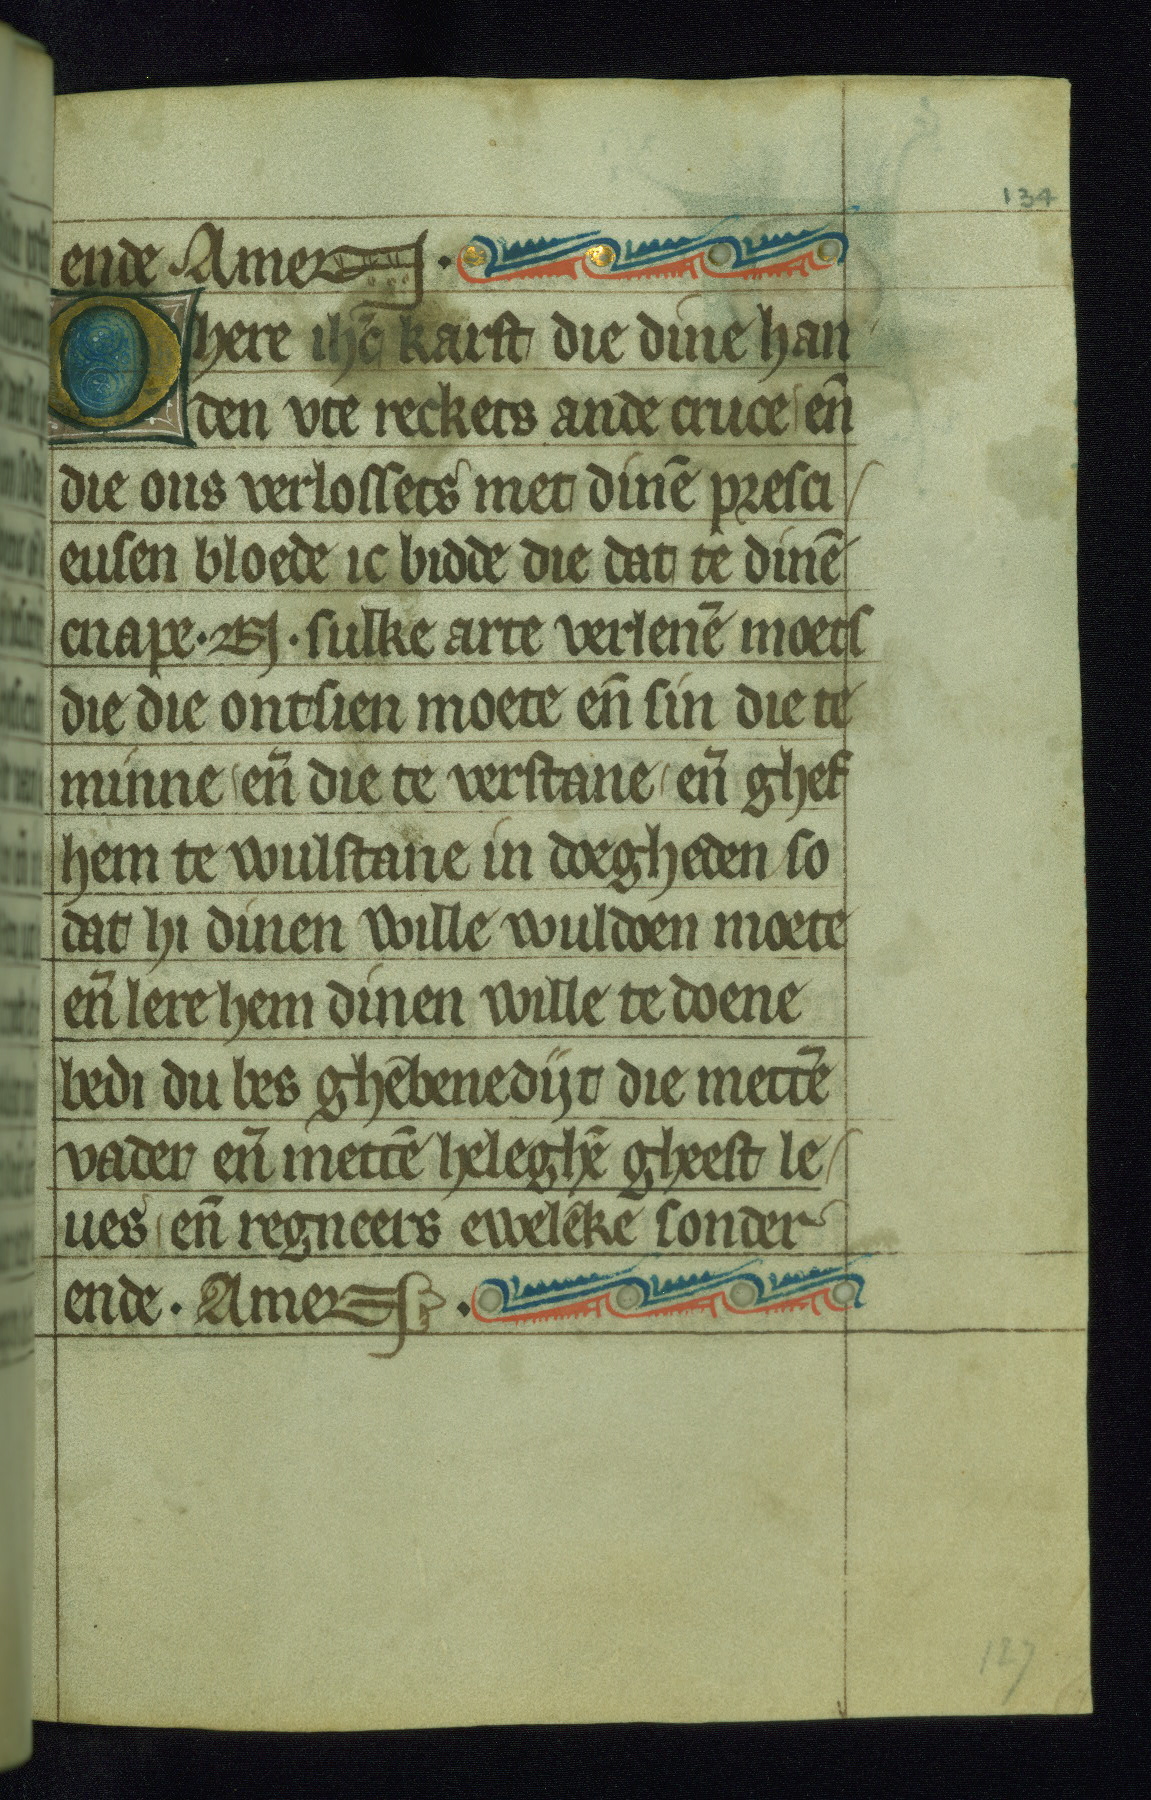 134
ende Amen ·
O here ihc̄ karst die dine han
den vte reckets ande cruce / en̄
die ons verlossets met dinē presci /
eusen bloede ic bidde die dat tē dinē
cnape · N · sulke arte verlenē moets
die die ontsien moete en̄ sin die te
minne / en̄ die te verstane / en̄ ghef
hem te wulstane in doegheden so
dat hi dinen wille wuldoen moete
en̄ lere hem dinen wille te doene
bedi du bes ghēbenedijt die mettē
vader en̄ mettē heleghē gheest le /
ues / en̄ regneers ewelēke sonder
ende · Amen ·
127